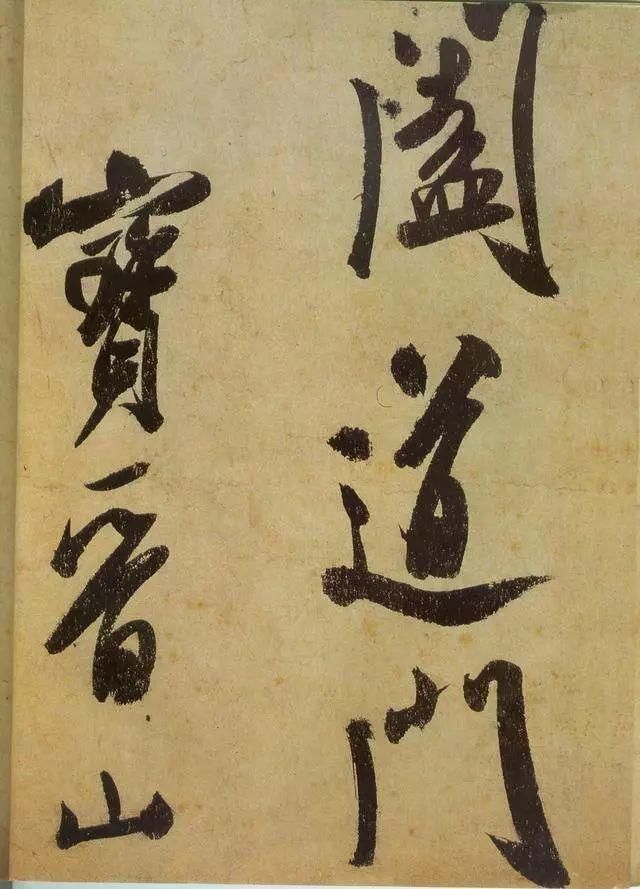 闔道門
寶晉山